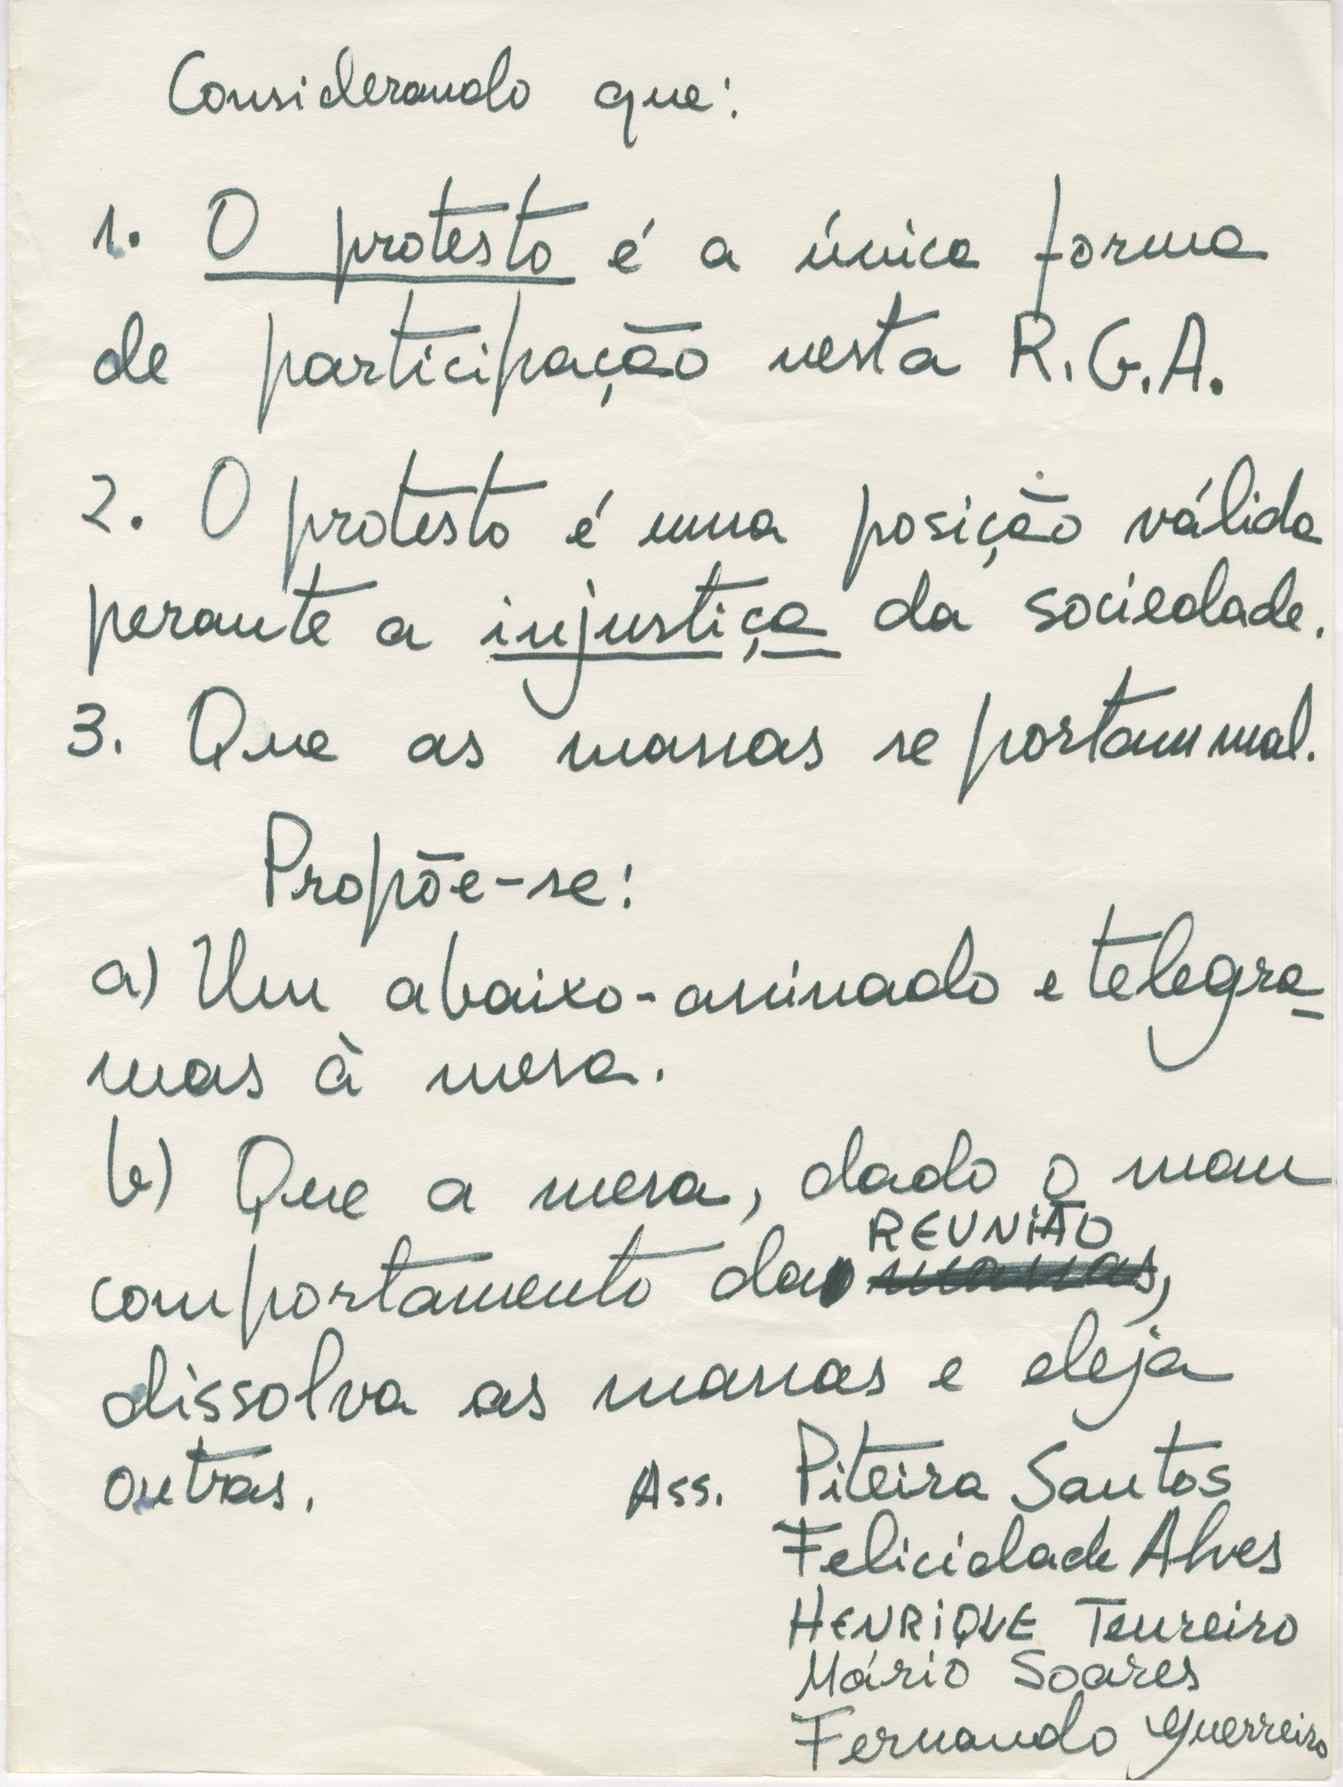 Considerando que:
1. O protesto é a única forma
de participação nesta R.G.A.
2. O protesto é uma posição válida
perante a injustiça da sociedade.
3. Que as massas se portam mal.
Propõe-se:
a) Um abaixo-assinado e telegra-
mas à mesa.
b) Que a mesa, dado o mau
REUNIÃO
comportamento da massas,
dissolva as massas e eleja
outras. Ass. Piteira Santos
Felicidade Alves
HENRIQUE Tenreiro
Mário Soares
Fernando Guerreiro